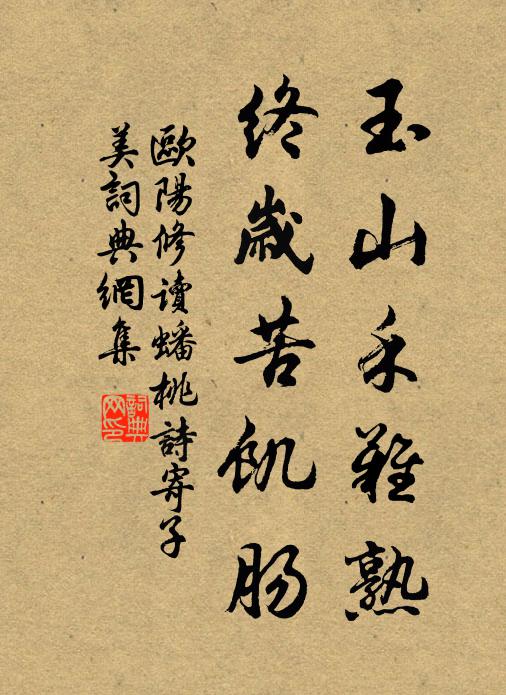 玉山禾難熟
終歲苦飢腸
歐陽修讀蟠桃詩寄子
美詞典網集
詞典
网印